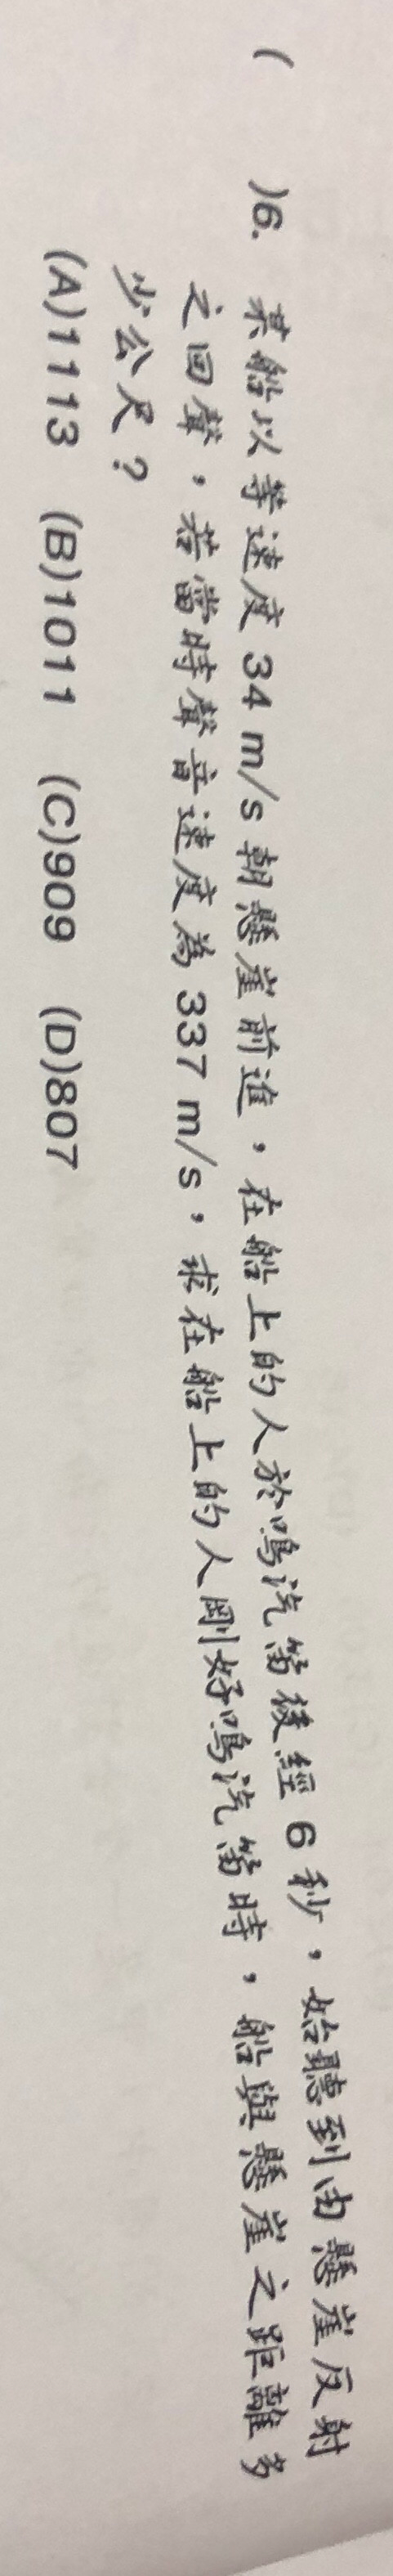 (　　)6. 某船以等速度 34 m/s 朝懸崖前進，在船上的人於鳴汽笛後經 6 秒，始聽到由懸崖反射
之回聲，若當時聲音速度為 337 m/s，求在船上的人剛好鳴汽笛時，船與懸崖之距離多
少公尺？
(A)1113　(B)1011　(C)909　(D)807